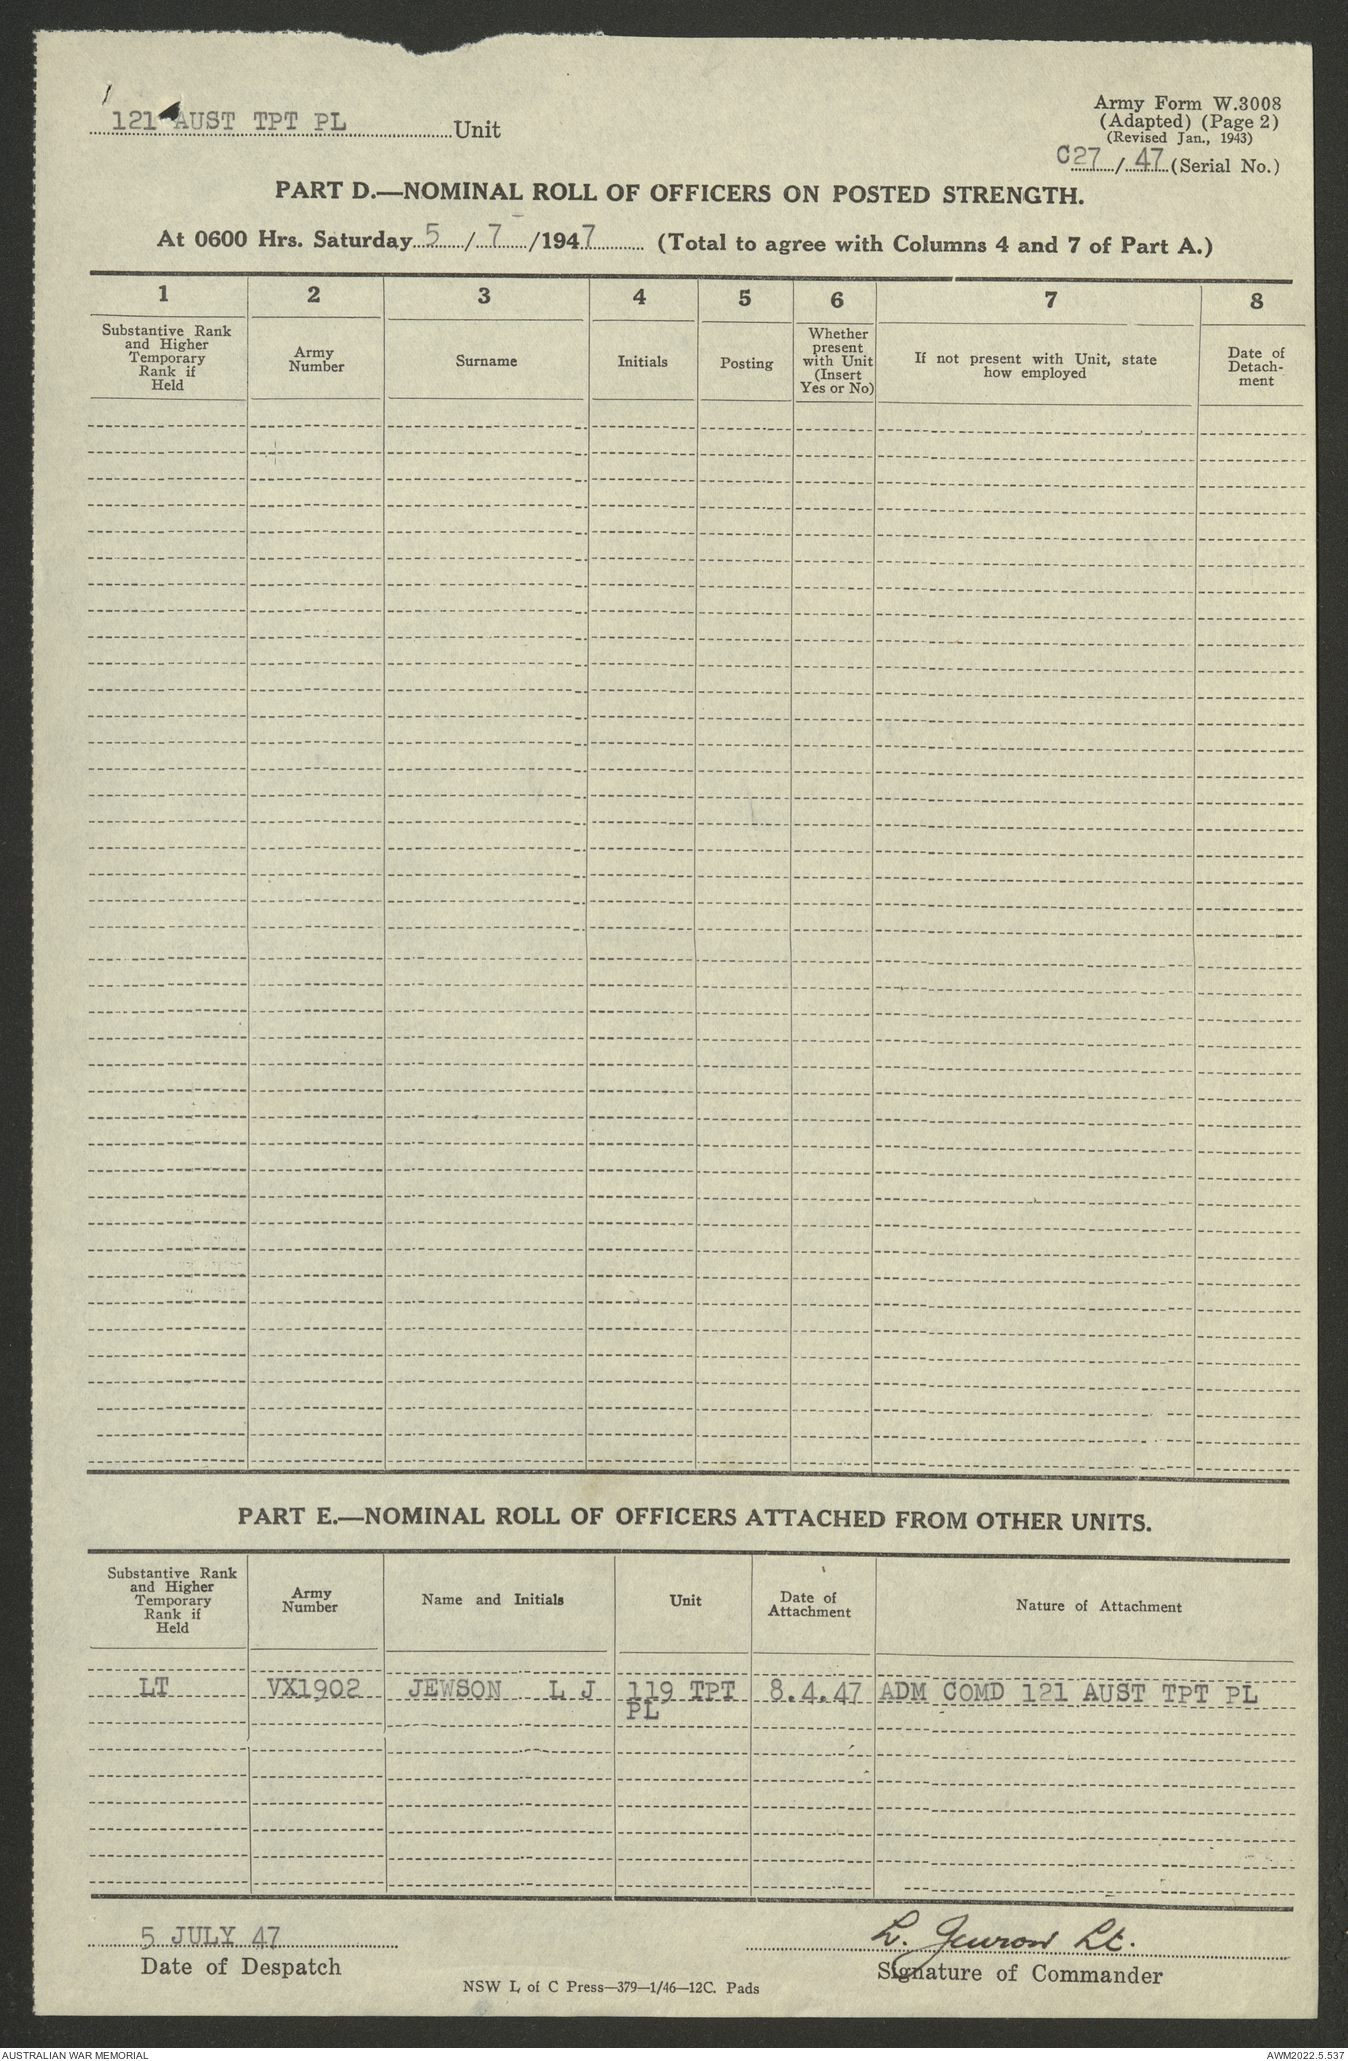 121 AUST TPT PL Unit
Army Form W.3008
(Adapted) (Page 2)
(Revised Jan., 1943)
C27 / 47 (Serial No.)
PART D.—NOMINAL ROLL OF OFFICERS ON POSTED STRENGTH.
At 0600 Hrs. Saturday 5 / 7 /1947 (Total to agree with Columns 4 and 7 of Part A.)
1 2 3 4 5 6 7 8
Substantive Rank
and Higher
Temporary
Rank if
Held
Army
Number
Surname
Initials
Posting
Whether
present
with Unit
(Insert
Yes or No)
If not present with Unit, state
how employed
Date of
Detach-
ment
PART E.—NOMINAL ROLL OF OFFICERS ATTACHED FROM OTHER UNITS.
Substantive Rank
and Higher
Temporary
Rank if
Held
Army
Number
Name and Initials
Unit
Date of
Attachment
Nature of Attachment
LT VX1902 JEWSON L J 119 TPT 8.4.47 ADM COMD 121 AUST TPT PL
PL
5 JULY 47
Date of Despatch
L. Jewson Lt.
Signature of Commander
NSW L of C Press—379—1/46—12C. Pads
AUSTRALIAN WAR MEMORIAL
AWM2022.5.537